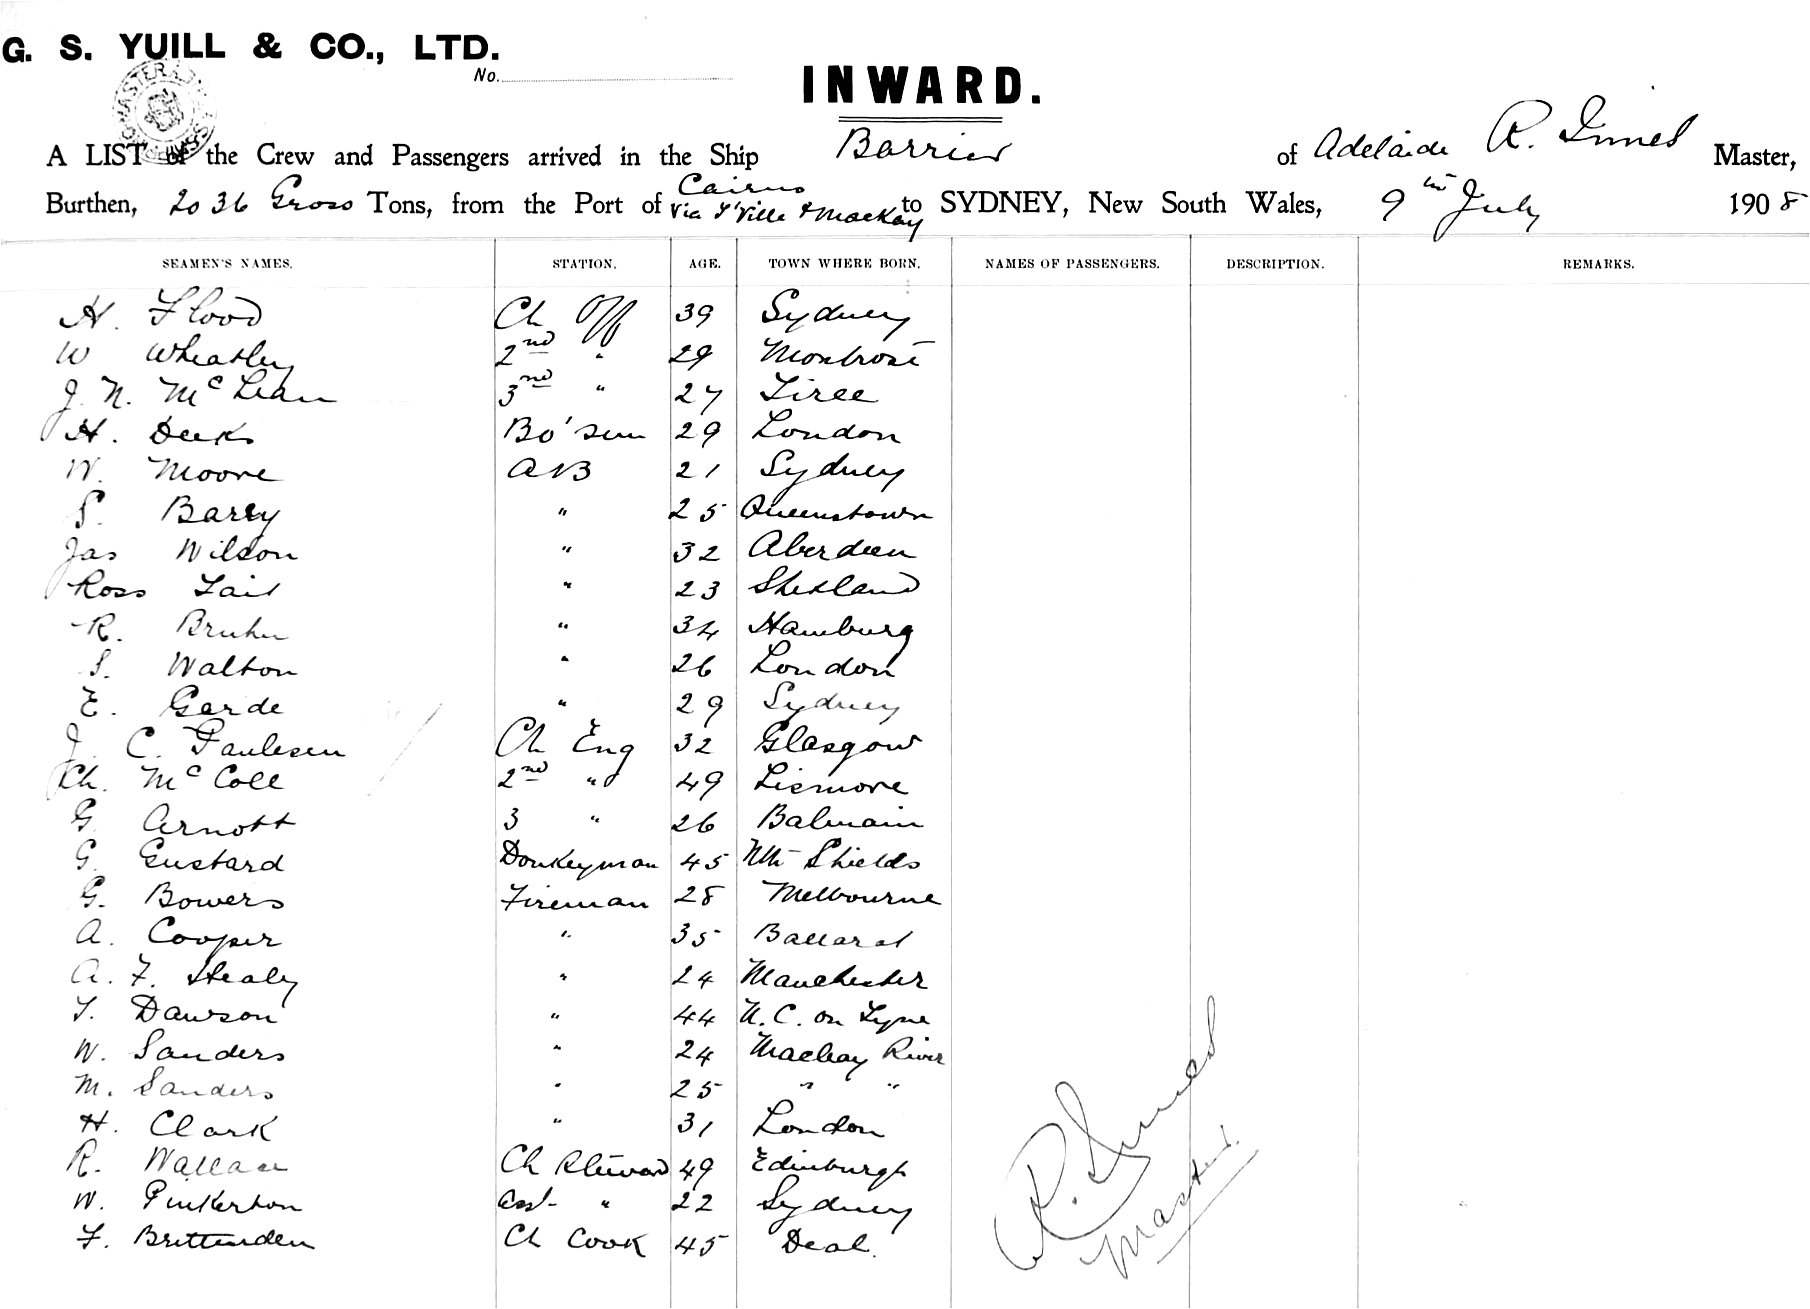 G. S. YUILL & CO., LTD.
No.
INWARD.
A LIST of the Crew and Passengers arrived in the Ship Barrier of Adelaide R. Innes Master,
Burthen, 2036 Gross Tons, from the Port of Cairns via T'Ville & Mackay to SYDNEY, New South Wales, 9th July 1908
SEAMEN'S NAMES. STATION. AGE. TOWN WHERE BORN. NAMES OF PASSENGERS. DESCRIPTION. REMARKS.
H. Flood Ch Off 39 Sydney
W Wheatley 2nd " 29 Montrose
J. N. McLean 3nd " 27 Tiree
H. Deeks Bo'sun 29 London
W. Moore AB 21 Sydney
S. Barry " 25 Queenstown
Jas Wilson " 32 Aberdeen
Ross Tait " 23 Shetland
R. Bruhn " 34 Hamburg
S. Walton " 26 London
E. Garde " 29 Sydney
J. C. Paulesen Ch Eng 32 Glasgow
Ch. McColl 2nd " 49 Lismore
G. Arnott 3 " 26 Balmain
G. Gustard Donkeyman 45 Nth Shields
G. Bowers Fireman 28 Melbourne
A. Cooper " 35 Ballarat
A. F. Healy " 24 Manchester
T. Dawson " 44 N.C. on Tyne
W. Sanders " 24 Macleay River
M. Sanders " 25 " "
H. Clark " 31 London
R. Wallace Ch Steward 49 Edinburgh
W. Pinkerton Asst " 22 Sydney
F. Brittenden Ch Cook 45 Deal.
R. Innes
Master.